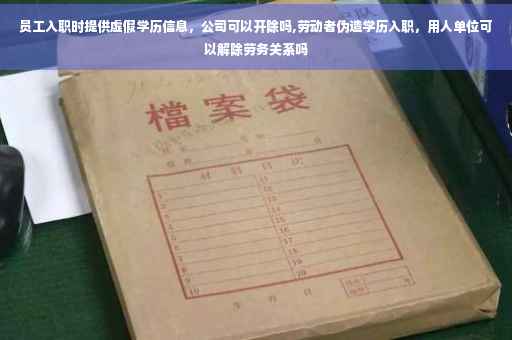 员工入职时提供虚假学历信息，公司可以开除吗,劳动者伪造学历入职，用人单位可
以解除劳务关系吗
檔案袋
材料目次
1 11
2 12
3 13
4 14
5 15
6 16
7 17
8 18
9 19
10 20
年 月 日